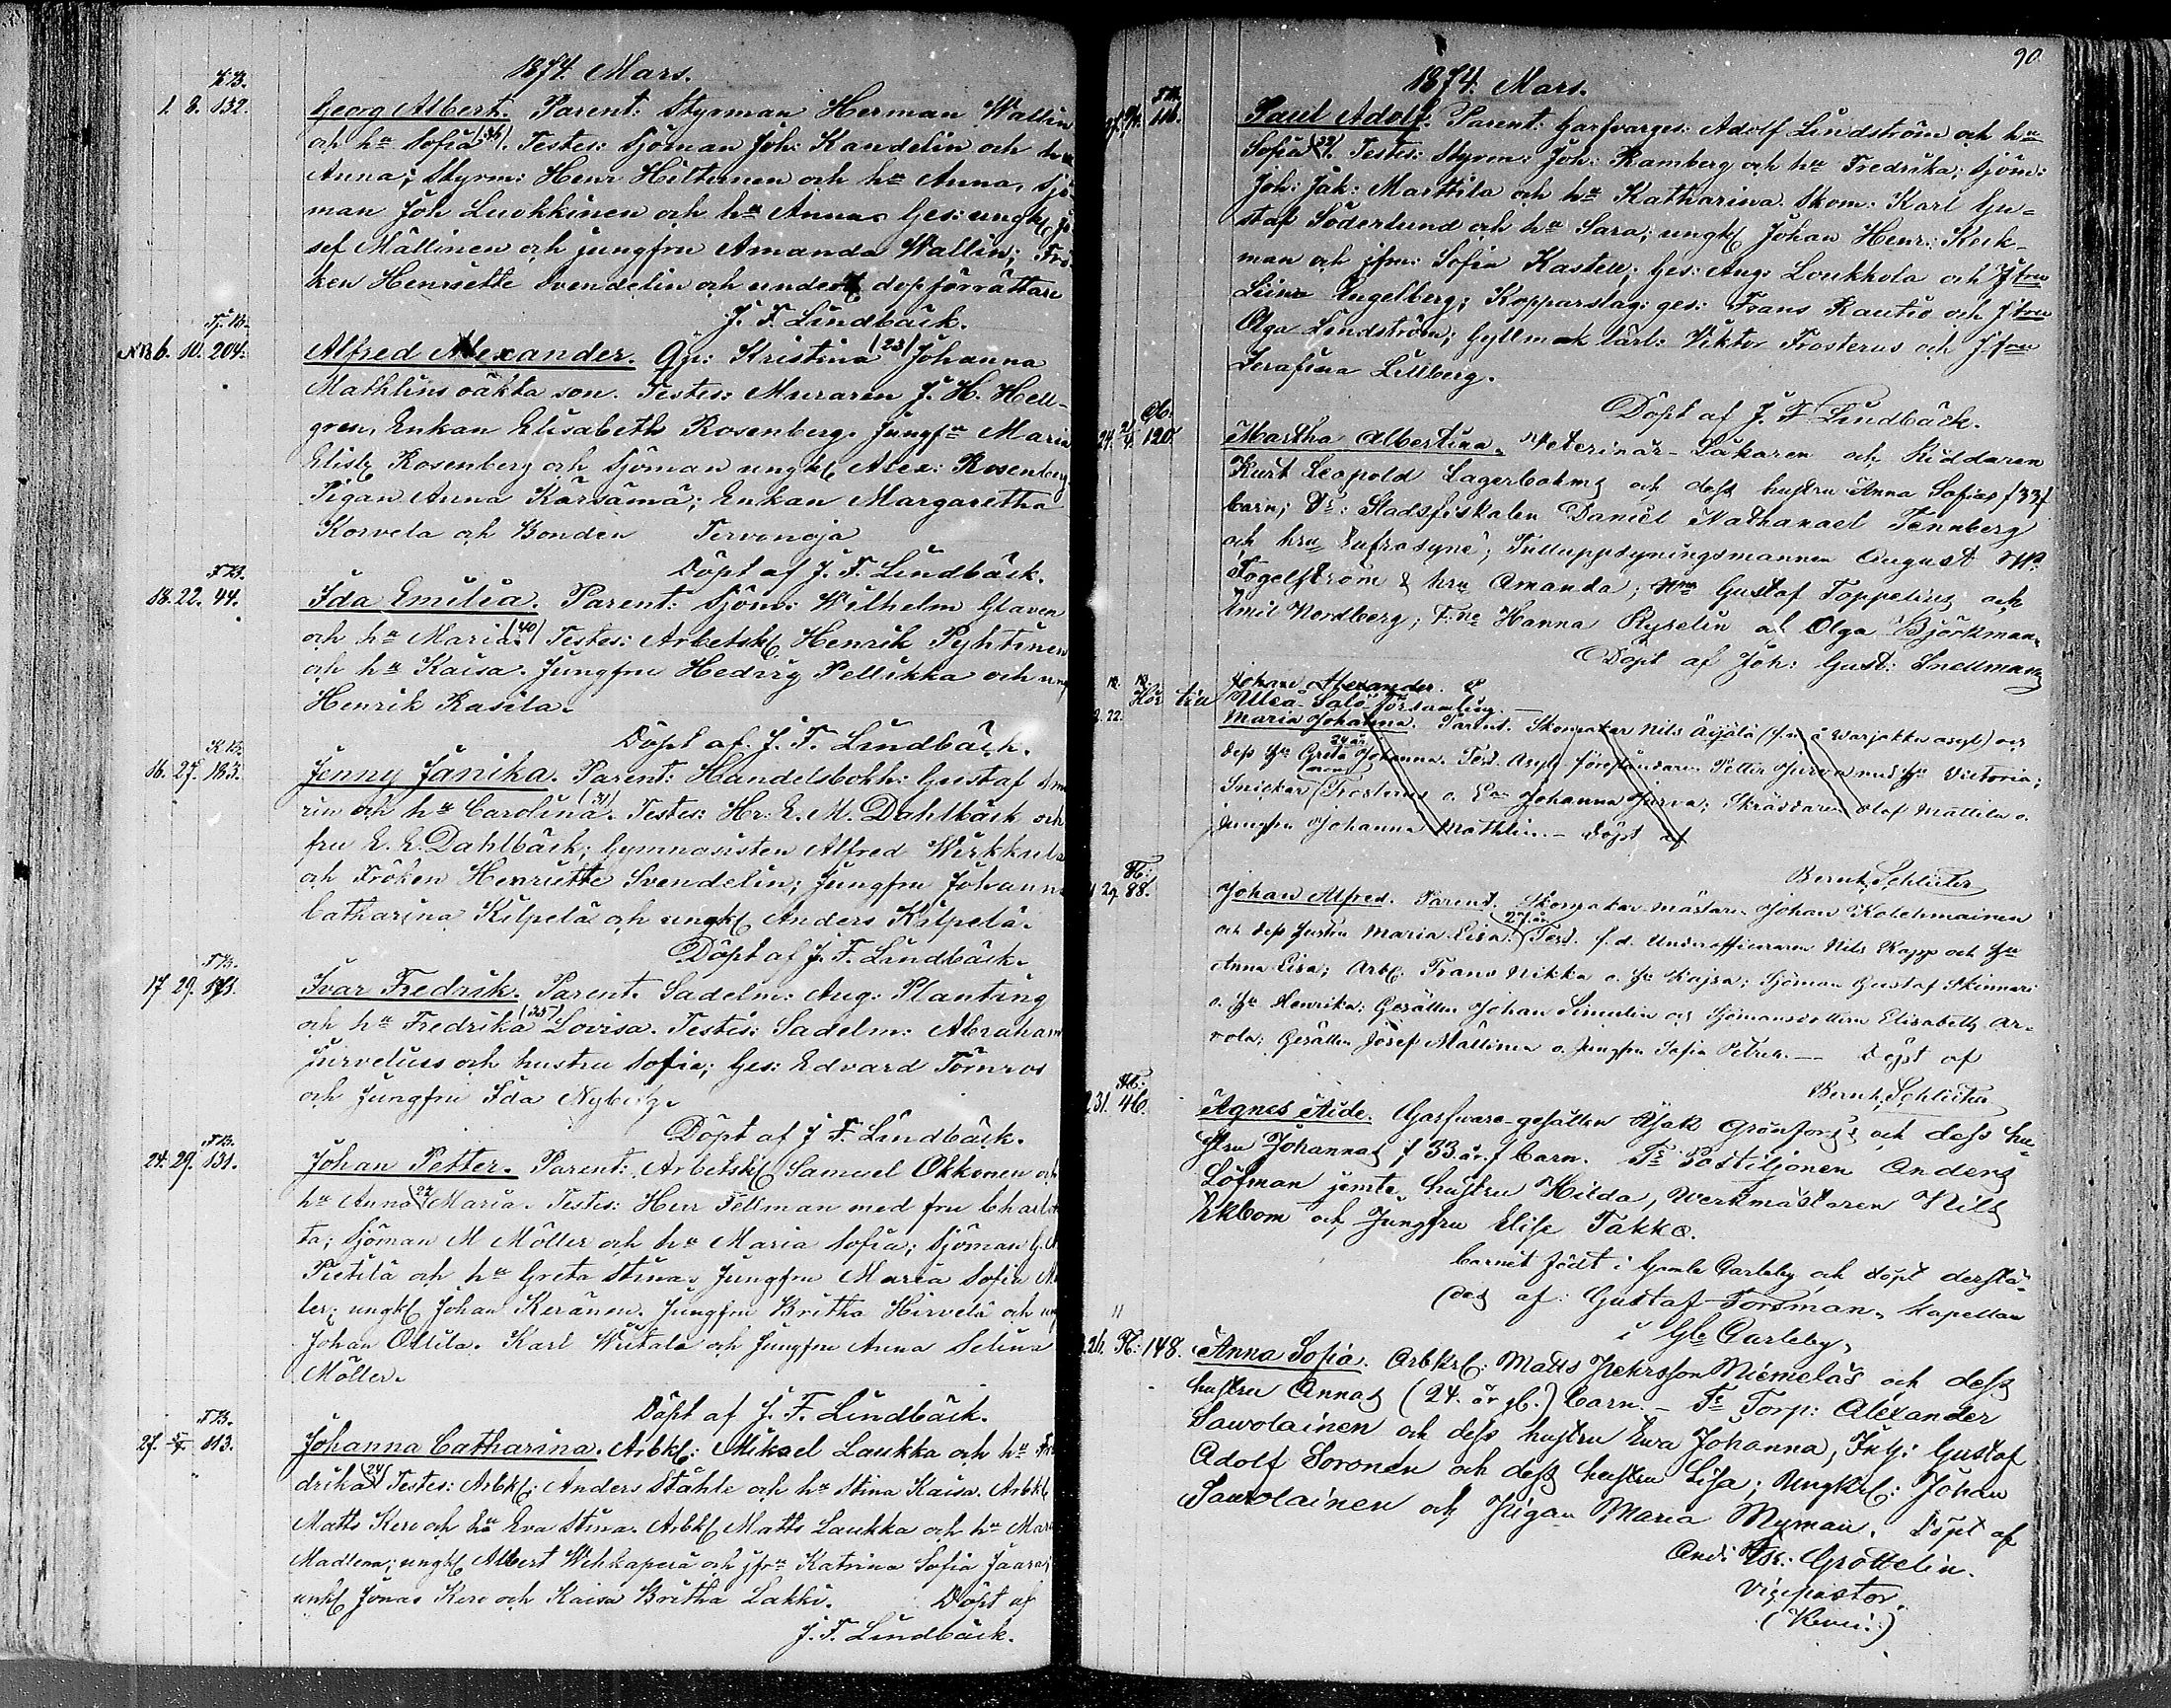 1874. Mars.
K B.
1. 8. 132. Georg Albert. Parent: Styrman Herman Wallin
och hu Sofia (36). Testes: Sjöman Joh: Kandelin och hu
Anna; Styrm: Henr Hiltunen och hu Anna, Sjö-
man Joh Luokkinen och hu Anna. Ges: ungk Jo-
sef Mällinen och jungfru Amanda Wallin; Frö-
ken Henriette Svendelin och undert dopförrättare
J. F. Lindbäck.
Tj. B.
NB 6. 10. 204. Alfred Alexander. Qp: Kristina (23) Johanna
Mathlins oäkta son. Testes: Muraren J. H. Hell-
gren, Enkan Elisabeth Rosenberg. Jungfu Maria
Elisb Rosenberg och Sjöman ungk Alex: Rosenberg
Pigan Anna Kärsämä; Enkan Margaretha
Korvela och Bonden Tervonoja
Döpt af J. F. Lindbäck.
F B.
18. 22. 44. Ida Emilia. Parent: Sjöm: Wilhelm Glaven
och hu Maria (40) Testes: Arbetsk Henrik Pyhtinen
och hu Kaisa. Jungfru Hedvig Pellikka och ungk
Henrik Rasila.
Döpt af. J. F. Lindbäck.
K B.
16. 27. 183. Jenny Janika. Parent: Handelsbokh: Gustaf
rin och hu Carolina (31). Testes: Hr. E. M. Dahlbäck och
fru E. E. Dahlbäck; Gymnasisten Alfred Wirkkula
och Fröken Henriette Svendelin; Jungfru Johanna
Catharina Kilpelä och ungk Anders Kilpelä.
Döpt af J. F. Lindbäck.
F B.
17 29. Ivar Fredrik. Parent. Sadelm: Aug: Planting
och hu Fredrika (25) Lovisa. Testis: Sadelm: Abraham
Jurvelius och hustru Sofia; Ges: Edvard Törnros
och Jungfru Ida Nyberg.
Döpt af J F. Lindbäck.
F B.
24. 29. 131. Johan Petter. Parent: Arbetsk Samuel Okkonen och
hu Anna 22 Maria. Testes: Herr Fellman med fru Charlot-
ta; Sjöman M Möller och hu Maria Sofia; Sjöman G. A
Pietilä och hu Greta Stina. Jungfru Maria Sofia Mö
ler; ungk Johan Keränen. Jungfru Britha Hirvelä och ungk
Johan Ollila. Karl Wiitala och Jungfru Anna Selina
Möller.
Döpt af J. F. Lindbäck.
F B.
27. 5/4. 113. Johanna Catharina. Arbk: Mikael Laukka och hu Fre
drika (24) Testes: Arbk: Anders Ståhle och hu Stina Kaisa. Arbk
Matts Kero och hu Eva Stina. Arbk Matts Laukka och hu Mar
Madlena; ungk Albert Wihkaperä och jfru Katrina Sofia Jaara
unk Jonas Kero och Kaisa Britha Lakki. Döpt af
J. F. Lindbäck.
90.
1874. Mars.
F B.
27. 116. Paul Adolf. Parent: Garfvarges: Adolf Lindström och hu
Sofia (32). Testes: Styrm: Joh: Ramberg och hu Fredrika; Sjöm:
Joh: Jak: Marttila och hu Katharina. Skom: Karl Gu-
staf Söderlund och hu Sara; ungk Johan Henr: Keck-
man och jfru: Sofia Kastell; Ges: Aug: Loukkola och Jfru
Liina Engelberg; Kopparslag: ges: Frans Rautio och Jfru
Olga Lindström; Gyllmak lärl: Viktor Frosterus och Jfru
Serafina Lillberg.
Döpt af J. F. Lindbäck.
24. 2/4. 120. Martha Albertina. Veterinär-Läkaren och Riddaren
Kurt Leopold Lagerbohms och dess hustru Anna Sofias (33)
barn; Ts: Stadsfiskalen Daniel Nathanael Tennberg
och hru Eufrosyne; Tulluppsyningsmannen August Wm
Fogelström & hru Amanda; Hrr Gustaf Toppelius och
Emil Nordberg; F:ne Hanna Ryselin och Olga Björkman.
Döpt af Joh: Gust: Snellman
10. 13. Johan Alexander.
Hör till Uleå-Salo församling.
22. Maria Johanna. Parent. Skomakar Nils Äijälä (f. n. å Warjakka asyl) och
dess hu Greta 24 år Johanna. Test. Asyl. föreståndaren Petter Jurva med hu Victoria;
Snickar Frosterus o. Johanna Jurva; Skräddaren Olof Mattila o.
Jungfru Johanna Mathlin. — Döpt af
Bernh. Schlüter
29. 88. Johan Alfred. Parent. Skomakar-mästaren Johan Kolehmainen
och dess hustru Maria Lisa. 27 år Test. f. d. Underofficeraren Nils Kapp och hu
Anna Lisa; Arb. Frans Nikka o. hu Kajsa; Sjöman Gustaf Skinnari
o. hu Henrika; Gesällen Johan Simelin och Sjömansdottern Elisabeth Ar-
vola; Gesällen Josef Mällinen o. Jungfru Sofia Petrell. — Döpt af
Bernh. Schlüter
31. 46. Agnes Aide. Garfware-gesällen Isak Grönfors' och dess hu-
stru Johannas (33 år.) barn. Ts Postiljonen Anders
Löfman jemte hustru Hilda, Werkmästaren Nils
Ekbom och Jungfru Elise Takka.
Barnet födt i Gamla Carleby och döpt derstä-
des af: Gustaf Forsman, kapellan
i Gla Carleby.
26. 148. Anna Sofia. Arbkrl: Matts Pehrsson Niemeläs och dess
hustru Annas (24. år gl.) barn. - Ts Torp: Alexander
Sawolainen och dess hustru Ewa Johanna, Inh: Gustaf
Adolf Soronen och dess hustru Lisa; Ungkrl: Johan
Sawolainen och Pigan Maria Nyman. Döpt af
And: Is: Grottelin.
Vicepastor.
(Kemi.)